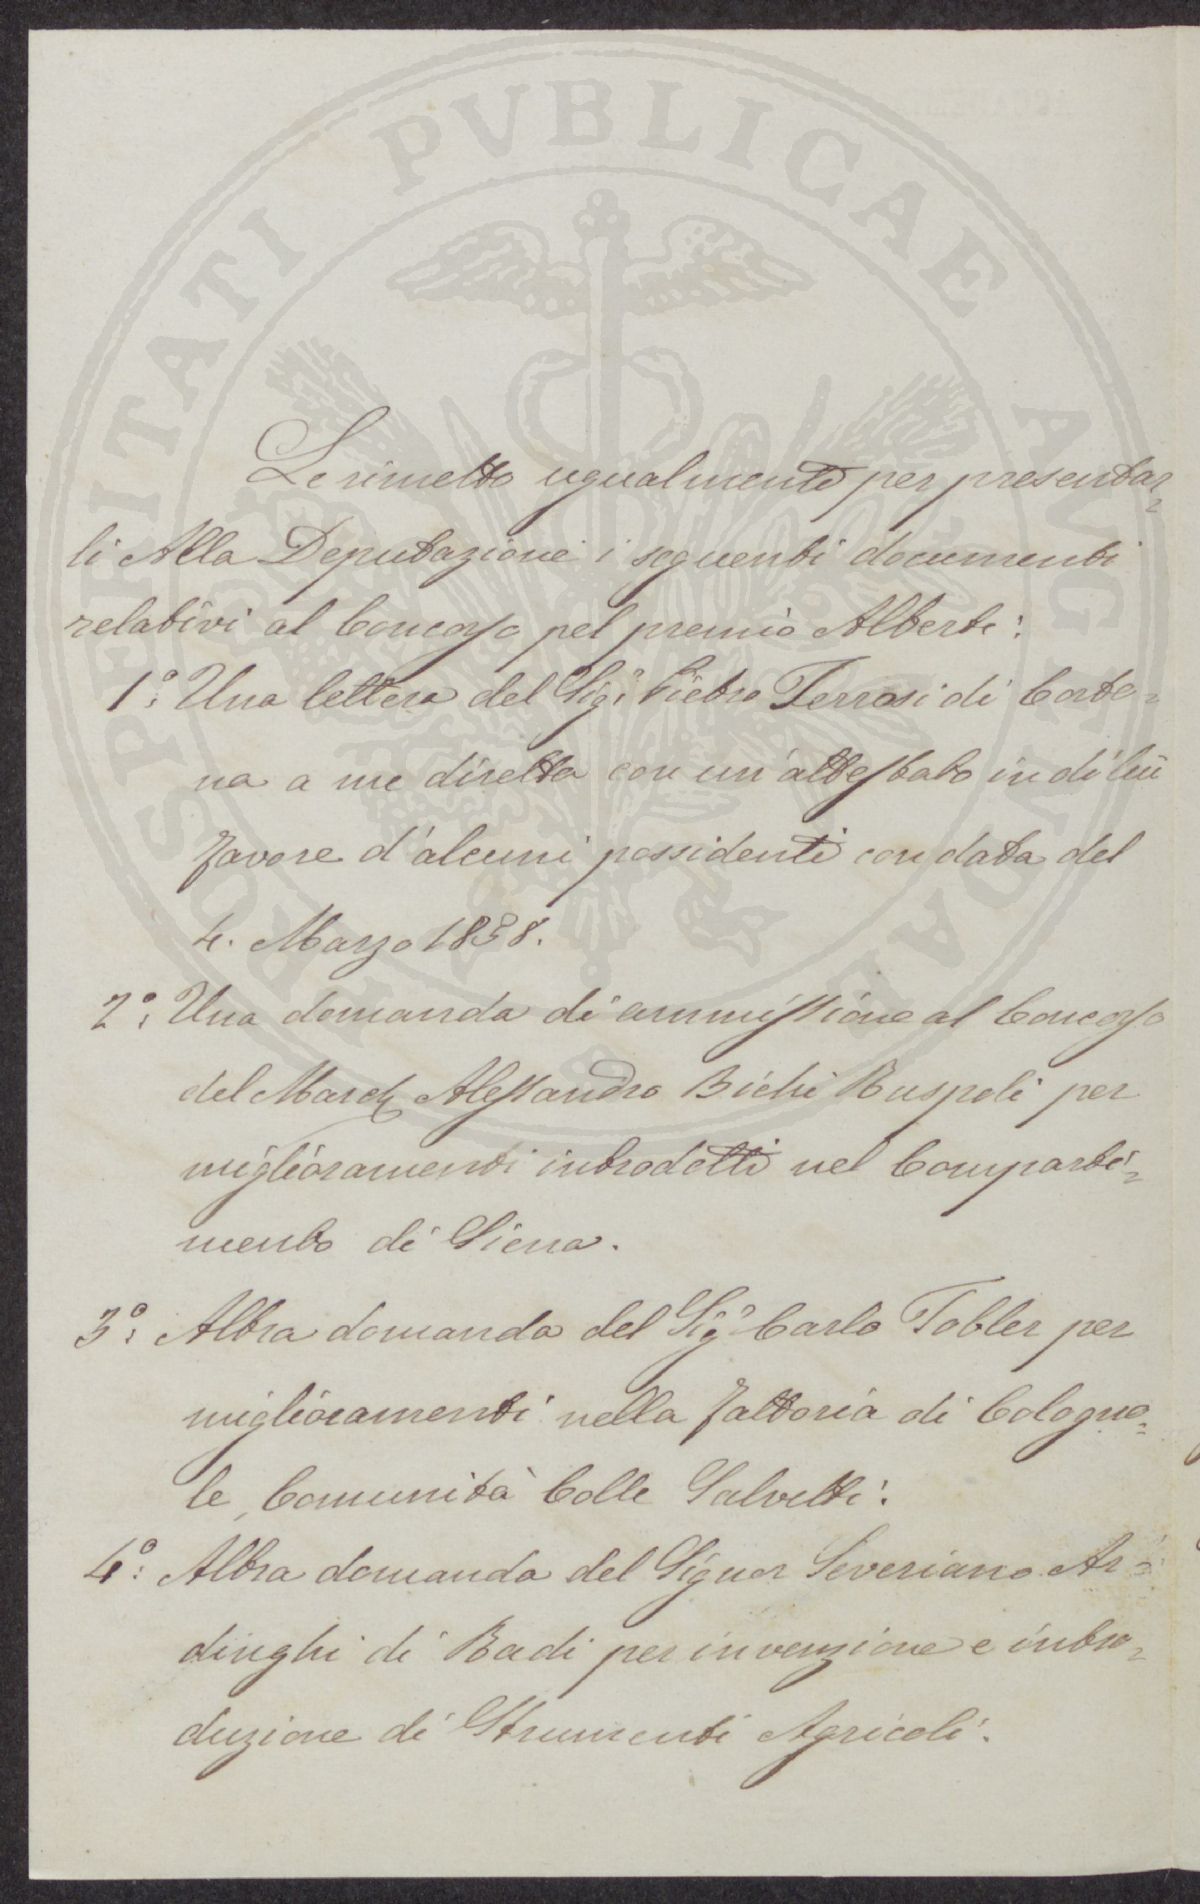 PROSPERITATI PVBLICAE AVGENDAE
Le rimetto ugualmente per presentar=
li Alla Deputazione i seguenti documenti
relativi al Concorso pel premio Alberti:
1°: Una lettera del Sigr. Pietro Terrosi di Ceto=
na a me diretta con un'attestato in di lui
favore d'alcuni possidenti con data del
4. Marzo 1858.
2°: Una domanda di ammissione al Concorso
del March Alessandro Bichi Ruspoli per
miglioramenti introdotti nel Comparti=
mento di Siena.
3°: Altra domanda del Sigr Carlo Tobler per
miglioramenti nella fattoria di Cologno=
le, Comunità Colle Salvetti:
4°: Altra domanda del Signor Severiano Ar=
dinghi di Badi per invenzione e intro=
duzione di Strumenti Agricoli.